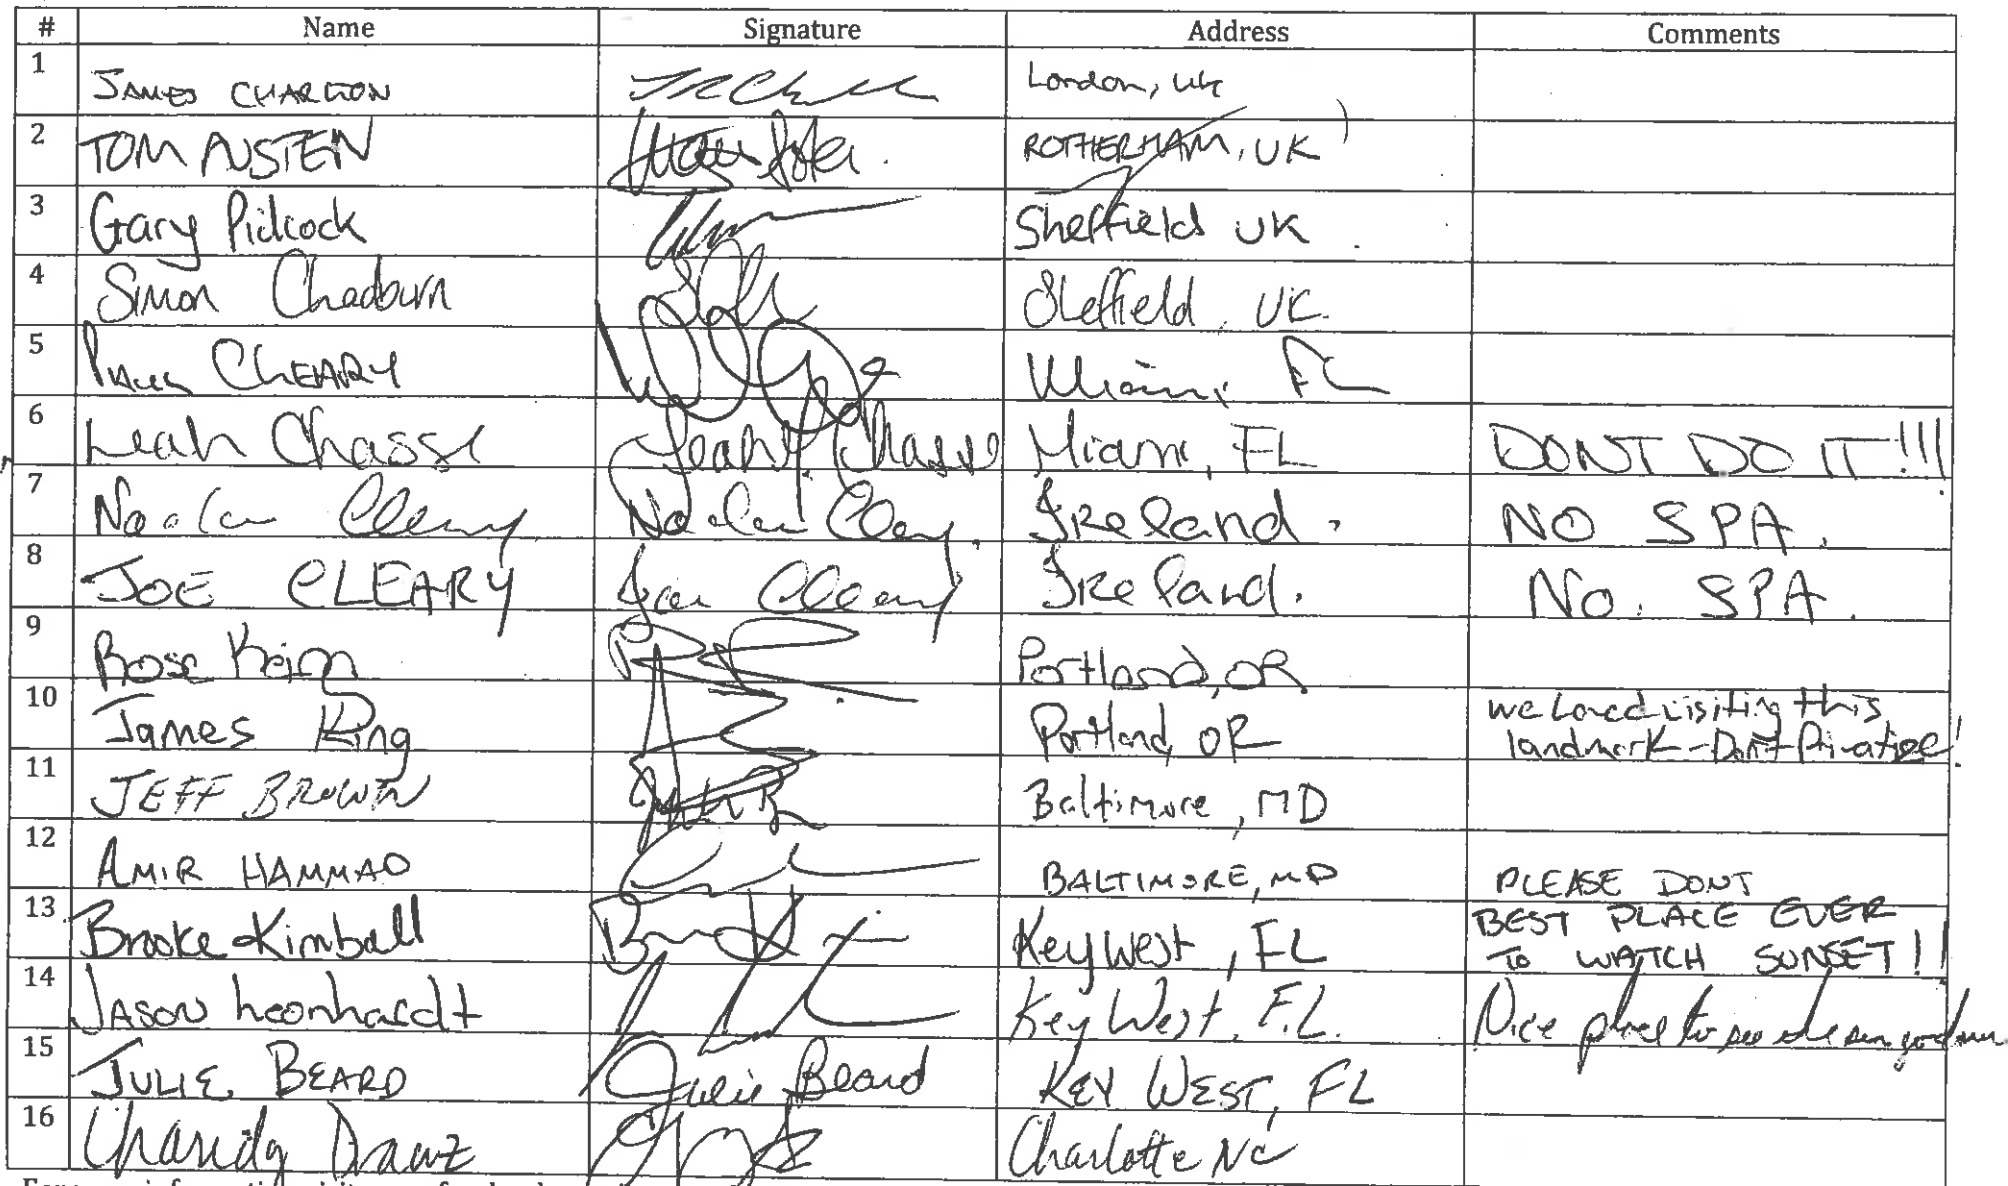 # Name Signature Address Comments
1 JAMES CHARLTON London, UK
2 TOM AUSTEN ROTHERHAM, UK
3 Gary Pidcock Sheffield UK
4 Simon Chadburn Sheffield, UK.
5 CHEARY Miami, FL
6 Leah Chasse Leah Chasse Miami, FL DONT DO IT!!!
7 Cleary Ireland. NO SPA.
8 JOE CLEARY Joe Cleary Ireland. No. SPA.
9 Rose Portland, OR
10 James King Portland, OR we loved visiting this
landmark - Don't Privatize!
11 JEFF BROWN Baltimore, MD
12 AMIR HAMMAD BALTIMORE, MD PLEASE DONT
13 Brooke Kimball Key West, FL BEST PLACE EVER
TO WATCH SUNSET!!
14 JASON Leonhardt Key West, FL. Nice place to see the sun go down
15 JULIE BEARD Julie Beard KEY WEST, FL
16 Charlotte NC